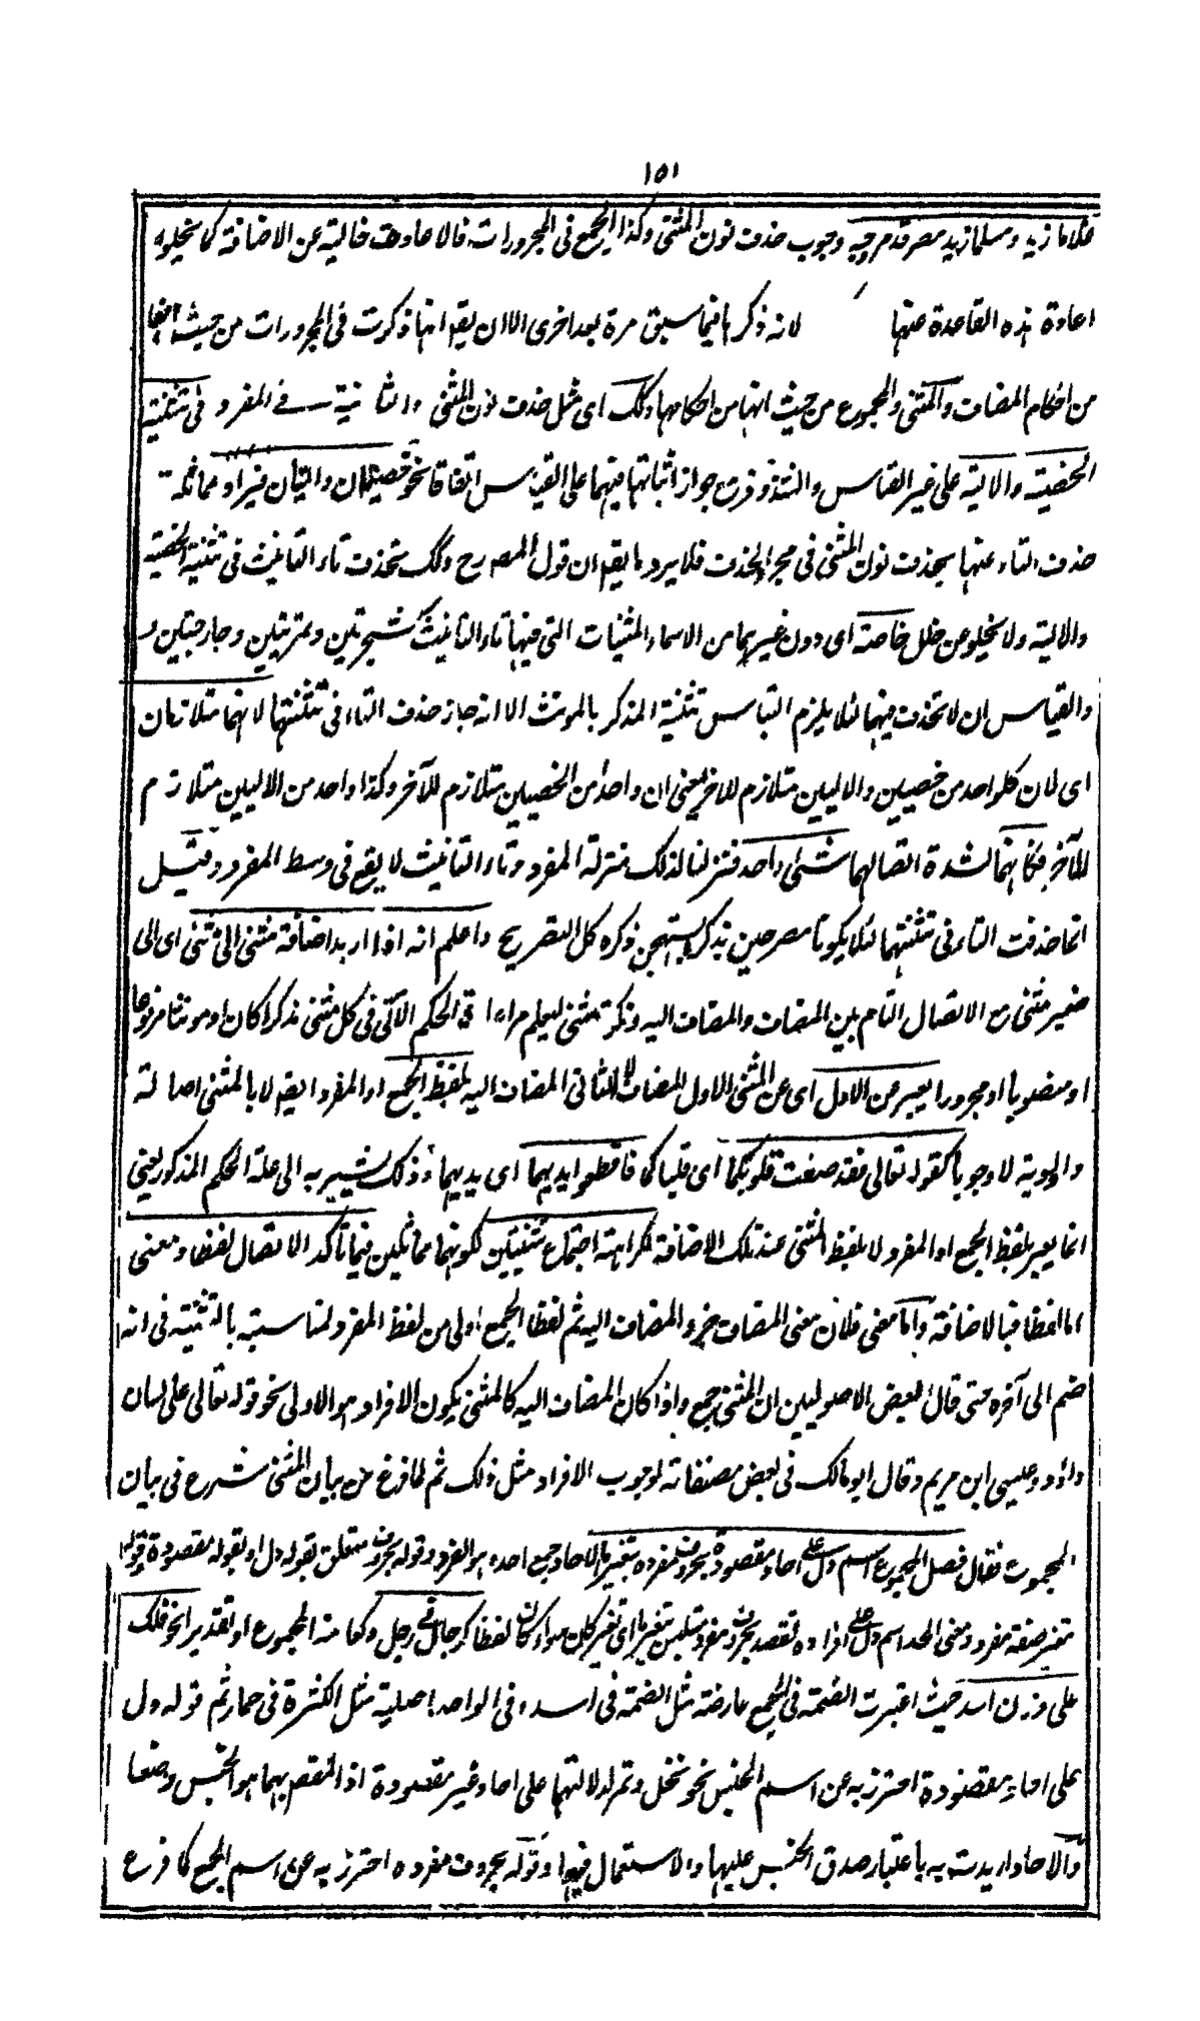 ١٥١
غلاما زيد ومسلما زيد مصرقد مر وجه وجوب حذف نون المثنى وكذا الجمع فى المجرورات فالاعادة خالية عن الاضافة كما يخلو
اعادة هذه القاعدة عنها لانه ذكرها فيما سبق مرة بعد اخرى الا ان يقه انها ذكرت فى المجرورات من حيث انها
من احكام المضاف والمثنى والمجموع من حيث انها من احكامها وكك اى مثل حذف نون المثنى والثانية فى المفرد فى تثنية
الخصية والالية على غير القياس والشذوذ مع جواز اثباتها فيهما على القياس اتفاقا نحو خصيتان واليتان فيراد مماثلة
حذف التاء عنها بحذف نون المثنى فى مجرد الحذف فلا يرد ما يقه ان قول المصرح وكك تحذف تاء التانيث فى تثنية الخصية
والالية ولا يخلو عن خلل خاصة اى دون غيرهما من الاسماء المثنيات التى فيها تاء التانيث كشجرتين وتمرتين وجارحتين و
والقياس ان لا تحذف فيهما لئلا يلزم التباس تثنية المذكر بالمونث الا انه جاز حذف التاء فى تثنيتها لانهما متلازمان
اى لان كلواحد من خصيين والاليين متلازم للاخر يعنى ان واحدا من الخصيين متلازم للآخر وكذا واحد من الاليين متلازم
للآخر فكانهما لشدة اتصالهما شىء واحد فنزلنا لذلك منزلة المفرد وتاء التانيث لا يقع فى وسط المفرد وقيل
انما حذفت التاء فى تثنيتهما لئلا يكونا مصرحين بذكر يستهجن ذكره كل التصريح واعلم انه اذا اريد اضافة مثنى الى مثنى اى الى
ضمير مثنى مع الاتصال التام بين المضاف والمضاف اليه وذكر مثنى ليعلم الحكم الآتى فى كل مثنى مذكرا كان او مونثا مرفوعا
او منصوبا او مجرورا يعبر عن الاول اى عن المثنى الاول المضاف لا الثانى المضاف اليه بلفظ الجمع او المفرد ايقه لا بالمثنى اصالة
لا وجوبا كقوله تعالى فقد صغت قلوبكما اى قلباكما فاقطعوا ايديهما اى يديهما وذلك يشير به الى علة الحكم المذكور يعنى
انما يعبر بلفظ الجمع او المفرد لا بلفظ المثنى عند تلك الاضافة لكراهة اجتماع تثنيتين لكونهما مماثلين فيما تاكد الاتصال لفظا ومعنى
اما لفظا فبالاضافة واما معنى فلان معنى المضاف جزء المضاف اليه ثم لفظ الجمع اولى من لفظ المفرد لمناسبته بالتثنية فى انه
ضم الى آخره حتى قال بعض الاصوليين ان المثنى جمع واذا كان المضاف اليه كالمثنى يكون الافراد هو الاولى نحو قوله تعالى على لسان
داؤد وعيسى ابن مريم وقال ابو مالك فى بعض مصنفاته لوجوب الافراد مثل ذلك ثم لما فرغ من بيان المثنى شرع فى بيان
المجموع فقال فصل المجموع اسم دل على احاد مقصودة بحروف مفرده بتغيير ما الاحاد جمع احد وهو الفرد وقوله بحروف متعلق بقوله دل او بقوله مقصودة وقوله
بتغيير صفة مفرد ومعنى الحد اسم دل على افراده تقصد بحروف مفرد متلبس بتغيير ما اى تغير كان سواء كان لفظا كرجال فى رجل وكعامة المجموع او تقديرا نحو فلك
على وزن اسد حيث اعتبرت الضمة فى الجمع عارضة مثل الضمة فى اسد وفى الواحد اصلية مثل الكثرة فى حمار ثم قوله دل
على احاد مقصودة احترز به عن اسم الجنس نحو نخل وتمر لدلالتهما على احاد غير مقصودة اذ المقصود بهما هو الجنس وضعا
والاحاد اريدت به باعتبار صدق الجنس عليها والاستعمال فيها وقوله بحروف مفرده احترز به عن اسم الجمع كما فرع